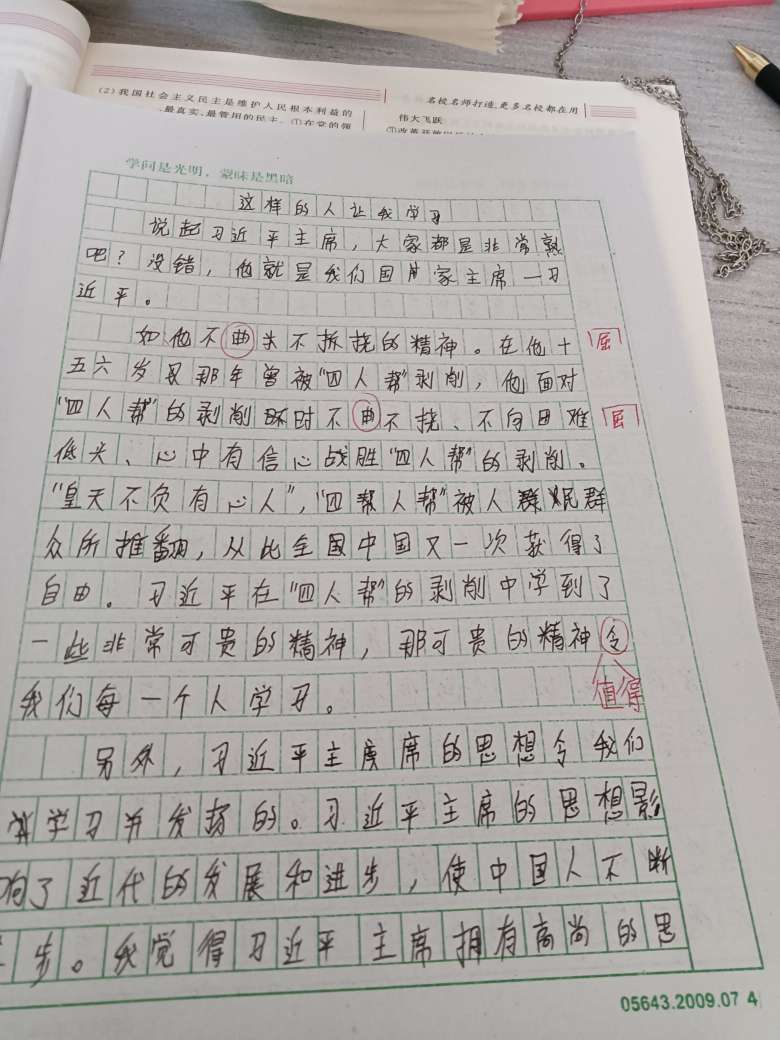 (2)我国社会主义民主是维护人民根本利益的
最真实、最管用的民主。①在党的领
名校名师打造,更多名校都在用
伟大飞跃
学问是光明，蒙昧是黑暗
这样的人让我学习
说起习近平主席，大家都是非常熟
吧？没错，他就是我们国家主席一习
近平。
如他不曲头不拆挠的精神。在他十
屈
五六岁那年曾被“四人帮”剥削，他面对
“四人帮”的剥削时不曲不挠、不向困难
屈
低头、心中有信心战胜“四人帮”的剥削。
“皇天不负有心人”，“四帮人帮”被人群民群
众所推翻，从此全国中国又一次获得了
自由。习近平在“四人帮”的剥削中学到了
一些非常可贵的精神，那可贵的精神令
值得
我们每一个人学习。
另外，习近平主度席的思想令我们
学习并发扬的。习近平主席的思想影
响了近代的发展和进步，使中国人不断
步。我觉得习近平主席拥有高尚的思
05643.2009.07 4